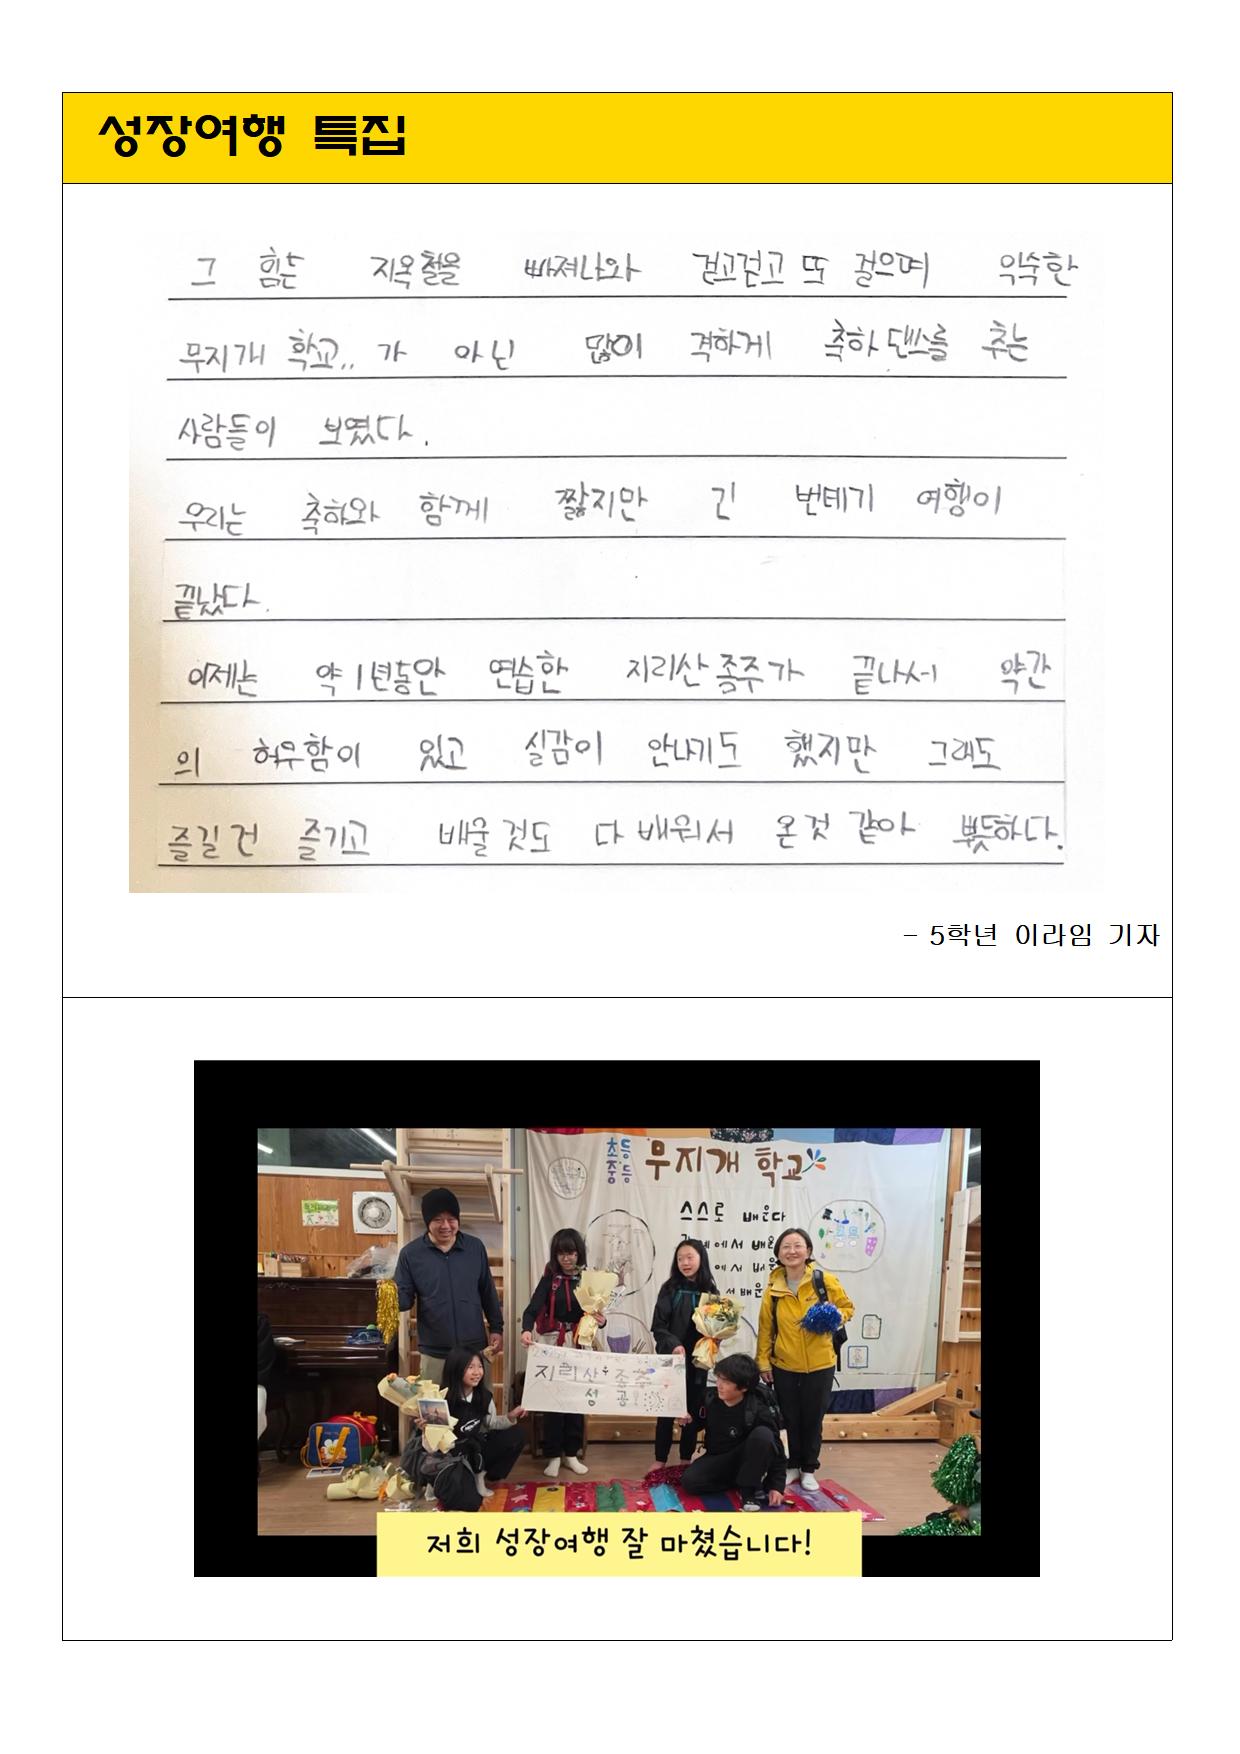 성장여행 특집
그 힘든 지옥철을 빠져나와 걷고걷고 또 걸으며 익숙한
무지개 학교.. 가 아닌 많이 격하게 축하 댄스를 추는
사람들이 보였다.
우리는 축하와 함께 짧지만 긴 번데기 여행이
끝났다.
이제는 약 1년동안 연습한 지리산 종주가 끝나서 약간
의 허무함이 있고 실감이 안나기도 했지만 그래도
즐길건 즐기고 배울 것도 다 배워서 온것 같아 뿌듯하다.
- 5학년 이라임 기자
초등
중등
무지개 학교
스스로 배운다
에서 배운
에서 배운
서 배운
중등
지리산 종주
성공!
저희 성장여행 잘 마쳤습니다!